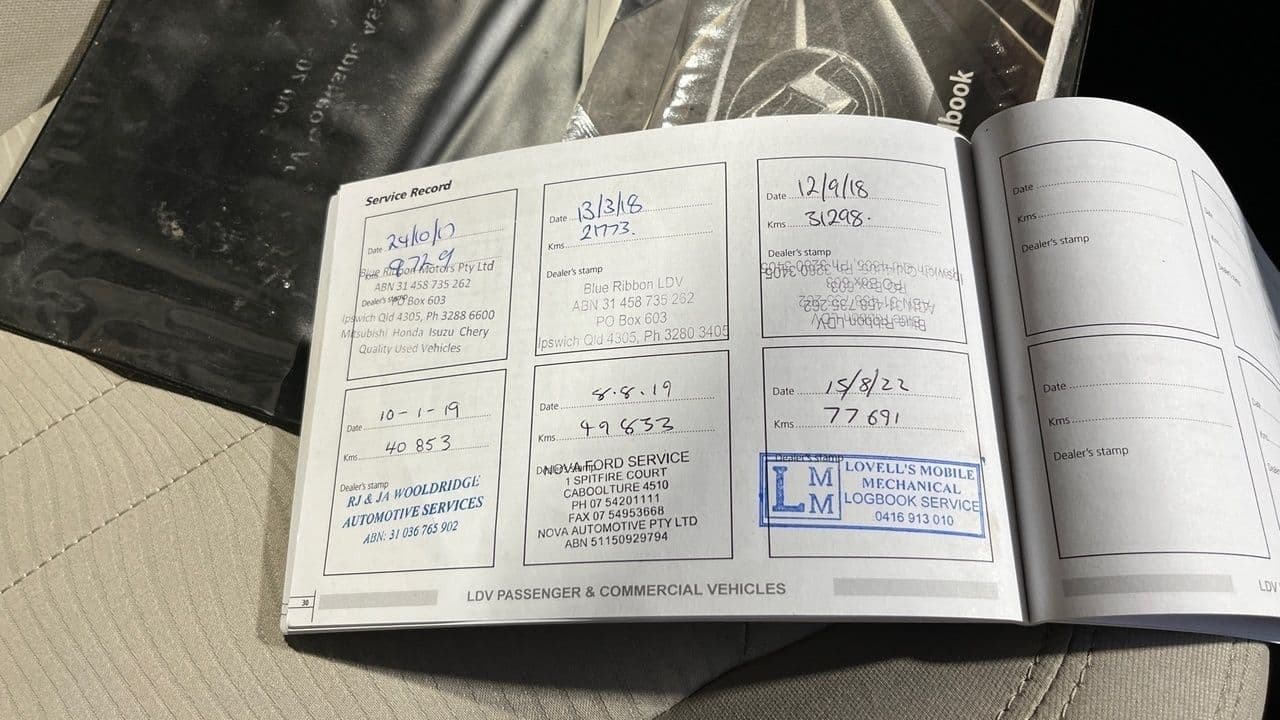 lbook
Service Record
Date 24/10/17
Kms 9729
Blue Ribbon Motors Pty Ltd
ABN 31 458 735 262
Dealer's stamp
PO Box 603
Ipswich Qld 4305, Ph 3288 6600
Mitsubishi Honda Isuzu Chery
Quality Used Vehicles
Date 13/3/18
Kms 21773.
Dealer's stamp
Blue Ribbon LDV
ABN 31 458 735 262
PO Box 603
Ipswich Qld 4305, Ph 3280 3405
Date 12/9/18
Kms 31298.
Dealer's stamp
Blue Ribbon LDV
ABN 31 458 735 262
PO Box 603
Ipswich Qld 4305, Ph 3280 3405
Date 10-1-19
Kms 40 853
Dealer's stamp
RJ & JA WOOLDRIDGE
AUTOMOTIVE SERVICES
ABN: 31 036 765 902
Date 8.8.19
Kms 49833
Dealer's stamp
NOVA FORD SERVICE
1 SPITFIRE COURT
CABOOLTURE 4510
PH 07 54201111
FAX 07 54953668
NOVA AUTOMOTIVE PTY LTD
ABN 51150929794
Date 15/8/22
Kms 77691
Dealer's stamp
LMM
LOVELL'S MOBILE
MECHANICAL
LOGBOOK SERVICE
0416 913 010
30
LDV PASSENGER & COMMERCIAL VEHICLES
Date
Kms
Dealer's stamp
Date
Kms
Dealer's stamp
LDV